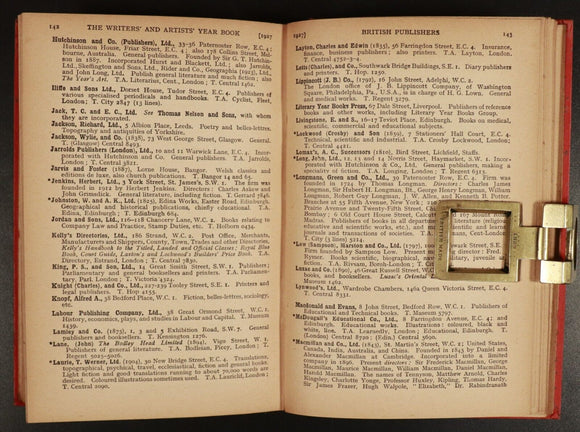 142 THE WRITERS' AND ARTISTS' YEAR BOOK [1927
Hutchinson and Co. (Publishers), Ltd., 33-36 Paternoster Row, E.C. 4;
Hutchinson House, Friar Street, E.C. 4; also 178 Collins Street,
bourne, Australia. General publishers. Founded by Sir G. T. Hutchin-
son in 1887. Incorporated Hurst and Blackett, Ltd.; also
Ltd., Skeffington and Sons, Ltd., Rider and Co., Geographia (1923), Ltd.,
and John Long, Ltd. Publish general literature and much fiction; also
The Year's Art. T.A. Literarius, Cent., London; T. Central 1462.
Iliffe and Sons Ltd., Dorset House, Tudor Street, E.C. 4. Publishers of
various specialised periodicals and handbooks. T.A. Cyclist, Fleet,
London; T. City 2847 (13 lines).
Jack, T. C. and E. C., Ltd. See Thomas Nelson and Sons, with whom
they are incorporated.
Jackson, Richard, Ltd., 5 Albion Place, Leeds. Poetry and belles-lettres,
Topography and antiquities of Yorkshire.
Jackson, Wylie, and Co. (1838), 73 West George Street, Glasgow. General.
T. (Glasgow) Central 8493.
Jarrolds Publishers (London), Ltd., 10 and 11 Warwick Lane, E.C. 4. Incor-
porated with Hutchinson and Co. General publishers. T.A. Jarrolds,
London; T. Central 3811.
Jarvis and Foster (1887), Lorne House, Bangor. Welsh classics and
éditions de luxe, also church publications. T. Bangor 14 and 65.
Jenkins, Herbert, Ltd., 3 York Street, St. James's, S.W. 1. The firm was
founded in 1912 by Herbert Jenkins; Directors: Charles Askew and
John Grimsdick. General literature, including fiction. T. Gerrard
*Johnston, W. and A. K., Ltd. (1825), Edina Works, Easter Road, Edinburgh.
Geographical and historical publications, chiefly educational. T.A.
Edina, Edinburgh; T. Edinburgh 664.
Jordan and Sons, Ltd., 116-118 Chancery Lane, W.C. 2. Books relating to
Company Law and Practice, Stamp Duties, etc. T. Holborn 0434.
Kelly's Directories, Ltd., 186 Strand, W.C. 2. Post Office, Merchants,
Manufacturers and Shippers, County, Town, Trades and other Directories,
Kelly's Handbook to the Titled, Landed and Official Classes; Royal Blue
Book, Court Guide, Laxton's and Lockwood's Builders' Price Book. T.A.
Directory, Estrand, London; T. Central 7830.
King, P. S., and Son, Ltd., 14 Great Smith Street, S.W. 1. Publishers;
Parliamentary and general booksellers and printers. T.A. Parliamen-
tary, Parl. London; T. Victoria
Knight (Charles), and Co., Ltd., 227-239 Tooley Street, S.E. 1. Printers and
legal publishers. T. Hop 2155.
Knopf, Alfred A., 38 Bedford Place, W.C. 1. Fiction, belles-lettres, sociology,
etc.
Labour Publishing Company, Ltd., 38 Great Ormond Street, W.C. 1.
History, economics, and studies of Labour and Capital. T. Museum
1439.
Lamley and Co. (1875), 1, 3 and 5 Exhibition Road, S.W. 7. General
publishers and booksellers. T. Kensington 1276.
*Lane, (John) The Bodley Head Limited (1894), Vigo Street, W. 1.
Publishers of general literature. T.A. Bodleian, Piccy, London; T.
Regent 5025-5026.
*Laurie, T. Werner, Ltd. (1904), 30 New Bridge Street, E.C. 4. Translations,
topographical, psychical, travel, ecclesiastical, fiction and general books.
Light fiction and good translations running to about 70,000 words are
desired. Coloured illustrations sometimes used. T.A. Lauriclef, London;
T. Central 2090.
1927] BRITISH PUBLISHERS 143
Layton, Charles and Edwin (1835), 56 Farringdon Street, E.C. 4. Insurance,
finance, business publishers; also printers, etc. T.A.
T. Central 1752-3-4.
Letts (Charles), and Co., Southwark Bridge Buildings, S.E. 1. Diary publishers
and printers. T. Hop 1230.
Lippincott (J. B.) Co. (1792), 16 John Street, Adelphi, W.C. 2.
The London office of J. B. Lippincott Company, of Washington
Square, Philadelphia, Pa., U.S.A., is in charge of H. G. Lown. General
and medical works. T. Regent 3479.
Literary Year Books Press, 67 Dale Street, Liverpool. Publishers of reference
books and other works, including Literary Year Books Group.
Livingstone, E. and S., 16-17 Teviot Place, Edinburgh. Books on medical,
scientific, commercial and educational subjects.
*Lockwood (Crosby) and Son (1859), 7 Stationers' Hall Court, E.C. 4.
Technical, scientific and industrial. T.A. Crosby Lockwood, London;
T. Central 6271.
Lomax's, A. C., Successors (1810), Bird Street, Lichfield, Staffs.
*Long, John, Ltd., 12, 13 and 14 Norris Street, Haymarket, S.W. 1. Incor-
porated with Hutchinson and Co., Ltd. General publishers, making a
speciality of fiction. T.A. Longing, London; T. Regent 6313.
*Longmans, Green and Co., Ltd., 39 Paternoster Row, E.C. 4. Firm was
founded in 1724 by Thomas Longman. Directors: Charles James
Longman, Sir Hubert H. Longman, Bt., George Henry Longman, William
Longman, Robert Guy Longman, and E. W. Hamilton.
Branches at 55 Fifth Avenue, New York;
Prairie Avenue and Twenty-Fifth Street, Chicago;
Bombay; 6 Old Court House Street, Calcutta; 167 Mount Road,
Madras. Publishers of books in all departments of literature, includ-
ing scientific works, educational, etc., and
journals and transactions of societies. T.A. Longman, Cent., London;
T. City (3 lines) 3214.
*Low (Sampson), Marston and Co., Ltd. (1797), 100 Southwark Street, S.E. 1.
Firm founded by Sampson Low. Present Director: Fred.
Nyear. Books scientific, biographical, travel, juvenile,
fiction. T.A. Rivsam, Bomb-London; T.
Luzac and Co. (1890), 46 Great Russell Street, W.C. 1.
books, and booksellers. Luzac's Oriental List.
London; T. Museum
Lynwood's, Ltd., Wardrobe Chambers, 146a Queen Victoria Street, E.C. 4.
T. Central 8331.
Macdonald and Evans, 8 John Street, Bedford Row, W.C. 1. Publishers of
Educational and Technical books. T. Museum 3797.
*McDougall's Educational Co., Ltd., 8 Farringdon Avenue, E.C. 4; and
Edinburgh. Educational works. Illustrations: coloured, black and
white, line. T.A. Learnedly; London; Educational, Edinburgh. T.
(London) Central 8720; (Edin.) Central 3600.
*Macmillan and Co., Ltd. (1843), St. Martin's Street, W.C. 2; United States,
Canada, India, Australia, and China. Founded in 1843 by Daniel and
Alexander Macmillan of Cambridge. Incorporated into a limited
company in 1896. Present directors: Sir Frederick Macmillan, George
Macmillan, Maurice Macmillan, William Macmillan, Daniel Macmillan,
Harold Macmillan. The names of Tennyson, Matthew Arnold, Charles
Kingsley, Charlotte Yonge, Professor Huxley, Kipling, Thomas Hardy,
Sir James Frazer, Hugh Walpole, "Elizabeth," Dr. Rabindranath